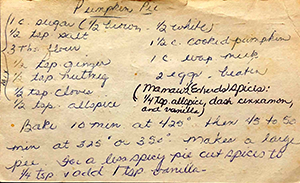 Pumpkin Pie
1 c. sugar (1/2 brown, 1/2 white)
1/2 tsp salt
1 1/2 c. cooked pumpkin
3 Tbs. flour
1 c. evap. milk
1/2 tsp ginger
2 eggs beaten
1/2 tsp nutmeg
1/2 tsp cloves
(Mamaw Edwards spices:
1/4 tsp. allspice, dash cinnamon,
and vanilla)
1/2 tsp. allspice
Bake 10 min at 425° then 45 to 50
min at 325° or 350°. Makes a large
pie. For a less spicy pie cut spices to
1/4 tsp & add 1 tsp vanilla.